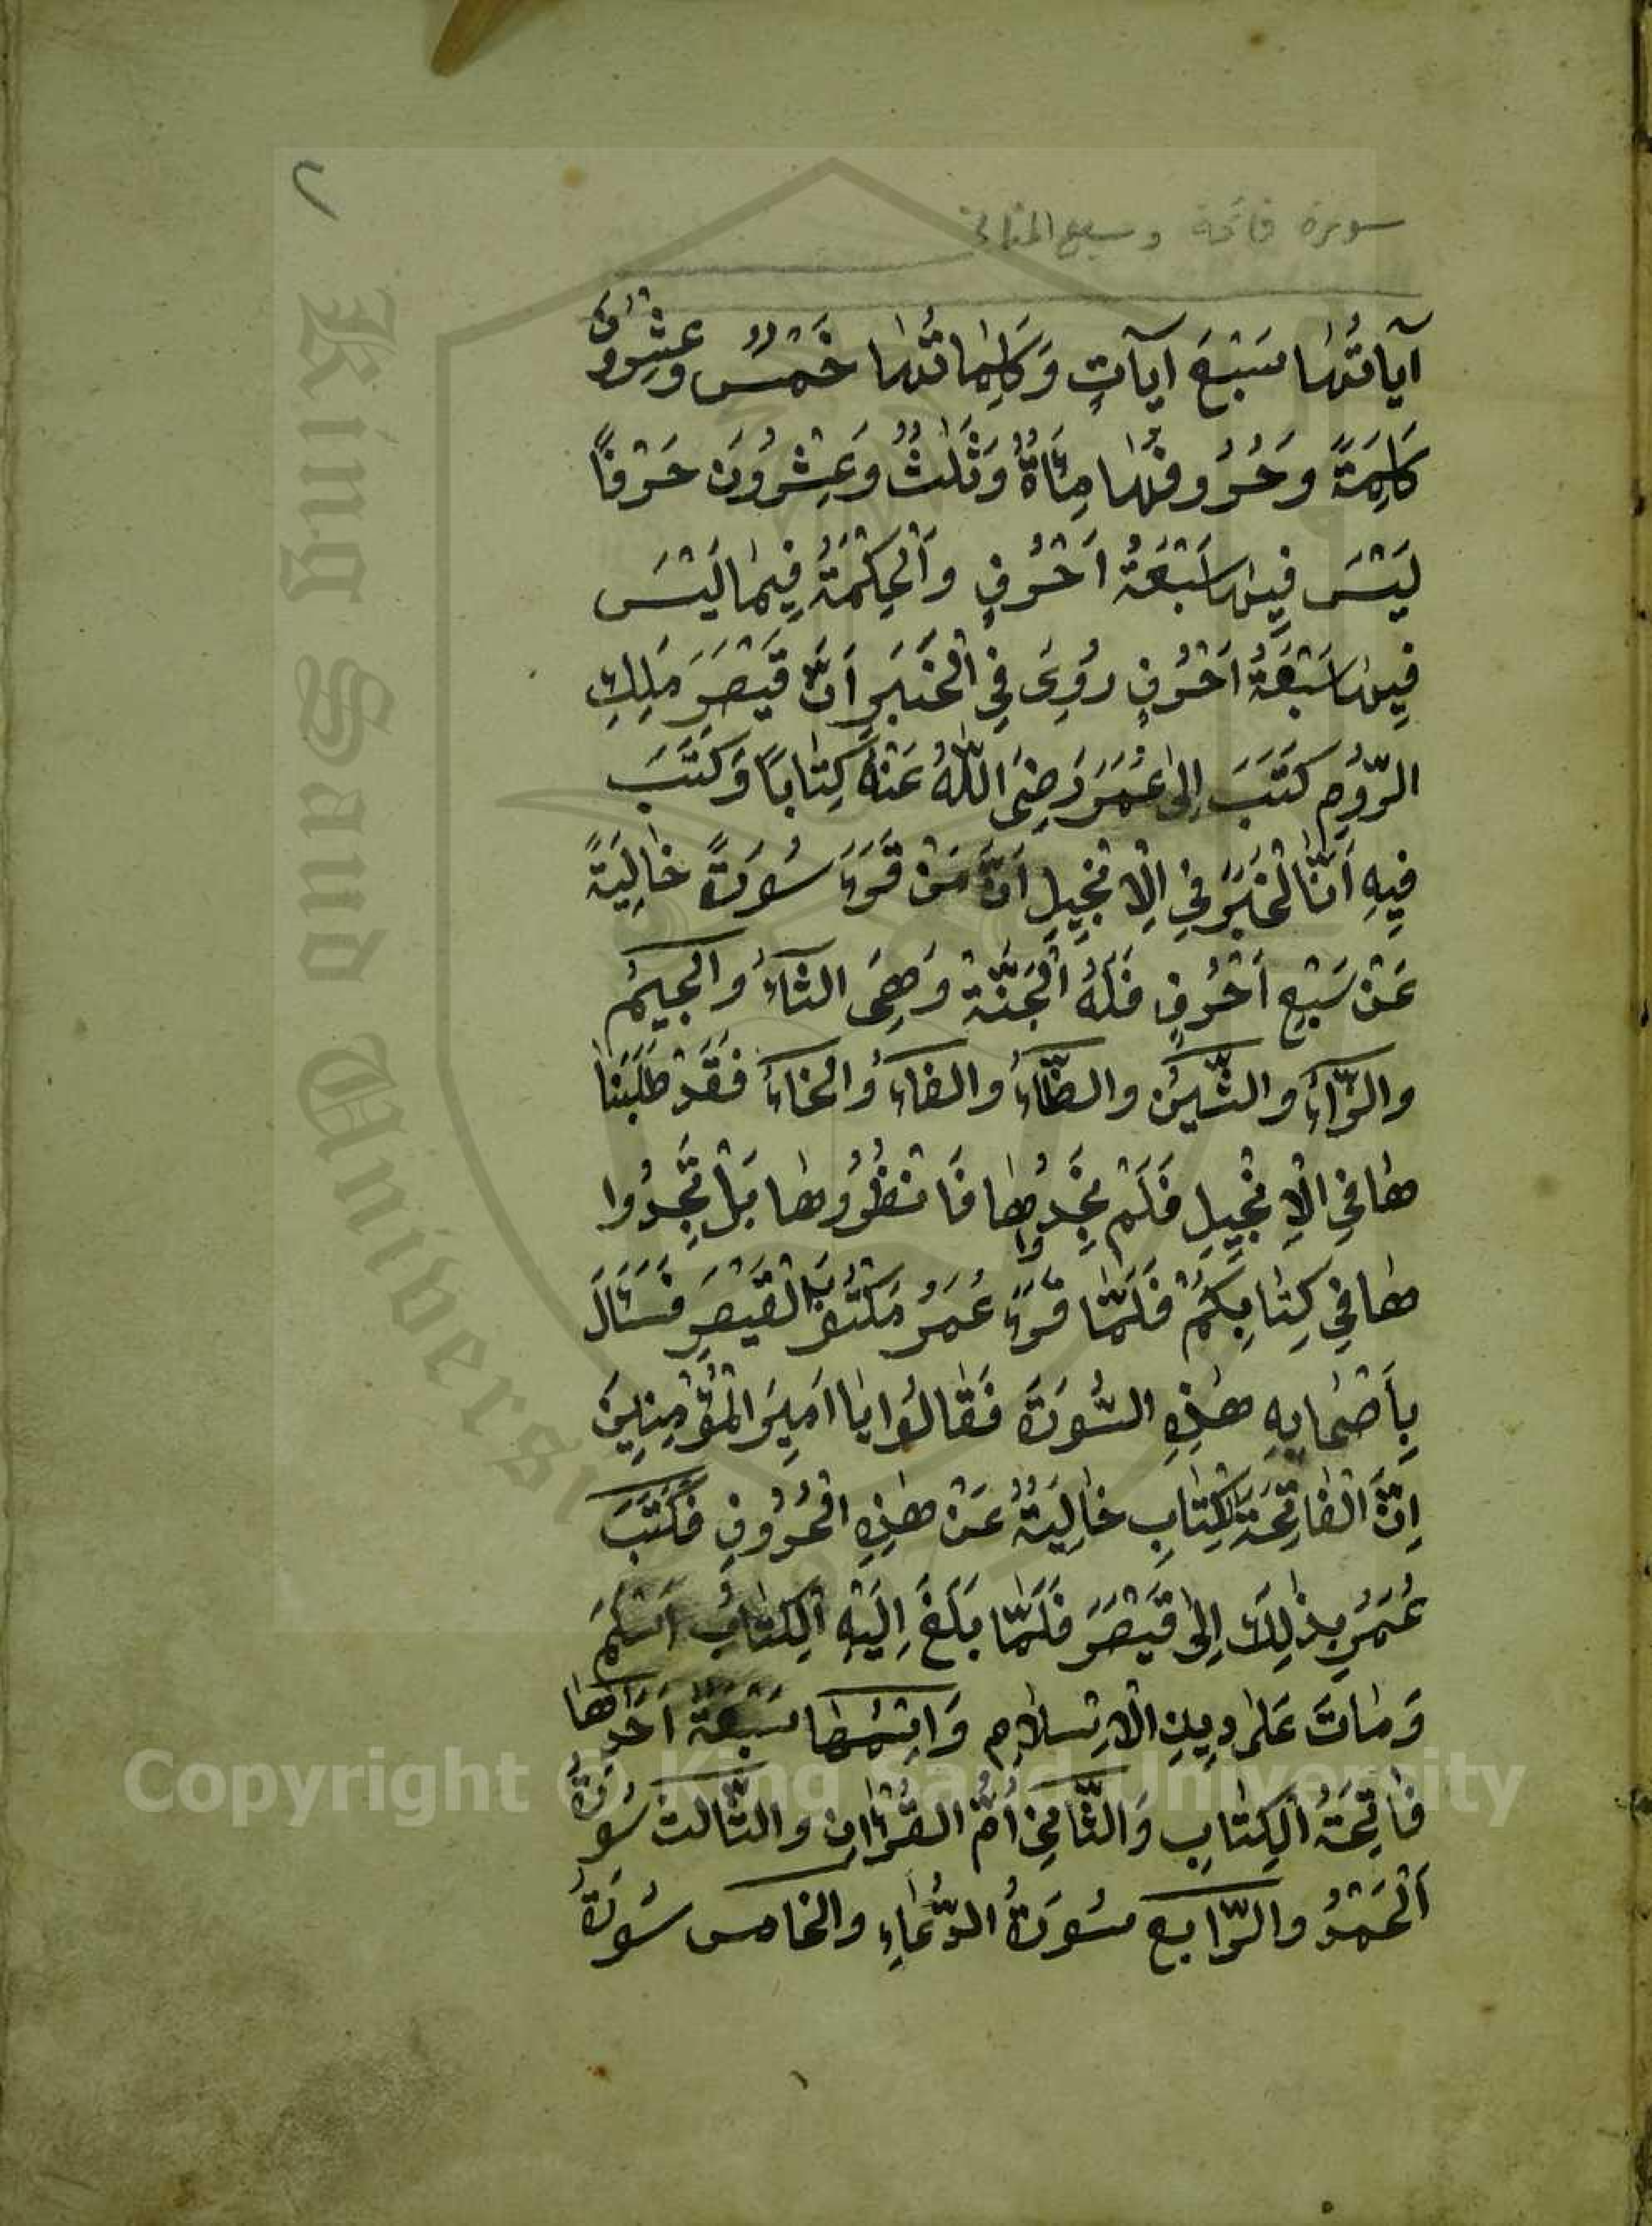 ٢
سورة فاتحة وسبع المثاني
آيَاتُهَا سَبْعَ آيَاتٍ وَكَلِمَاتُهَا خَمْسٌ وَعِشْرُونَ
كَلِمَةً وَحُرُوفُهَا مِائَةٌ وَثَلٰثٌ وَعِشْرُونَ حَرْفًا
لَيْسَ فِيهَا سَبْعَةُ اَحْرُفٍ وَالْحِكْمَةُ فِيمَا لَيْسَ
فِيهَا سَبْعَةُ اَحْرُفٍ رُوِىَ فِي الْخَبَرِ اَنَّ قَيْصَرَ مَلِكِ
الرُّومِ كَتَبَ اِلٰى عُمَرَ رَضِىَ اللّٰهُ عَنْهُ كِتَابًا وَكَتَبَ
فِيهِ اَنَّ الْخَبَرَ فِي الْاِنْجِيلِ اَنَّ مَنْ قَرَءَ سُورَةً خَالِيَةً
عَنْ سَبْعِ اَحْرُفٍ فَلَهُ الْجَنَّةَ وَهِىَ الثَّاءُ وَالْجِيمُ
وَالزَّاءُ وَالشِّينُ وَالظَّاءُ وَالْفَاءُ وَالْخَاءُ فَقَدْ طَلَبْنَا
هَا فِي الْاِنْجِيلِ فَلَمْ نَجِدُوهَا فَانْظُرُوهَا بَلْ تَجِدُوا
هَا فِي كِتَابِكُمْ فَلَمَّا قَرَءَ عُمَرُ مَكْتُوبَ الْقَيْصَرِ فَسَئَالَ
بِاَصْحَابِهِ هٰذِهِ السُّورَةَ فَقَالُوا يَا اَمِيرَ الْمُؤْمِنِينَ
اِنَّ الْفَاتِحَةَ الْكِتَابِ خَالِيَةٌ عَنْ هٰذِهِ الْحُرُوفِ فَكَتَبَ
عُمَرُ بِذٰلِكَ اِلٰى قَيْصَرَ فَلَمَّا بَلَغَ اِلَيْهِ الْكِتَابُ اَسْلَمَ
وَمَاتَ عَلٰى دِينِ الْاِسْلَامِ وَاِسْمُهَا سَبْعَةٌ اَحَدُهَا
فَاتِحَةُ الْكِتَابِ وَالثَّانِي اُمُّ الْقُرْاٰنِ وَالثَّالِثُ سُورَةُ
اَلْحَمْدُ وَالرَّابِع سُورَةُ الدُّعَاءِ وَالْخَامِس سُورَةُ
King Saud University
Copyright © King Saud University